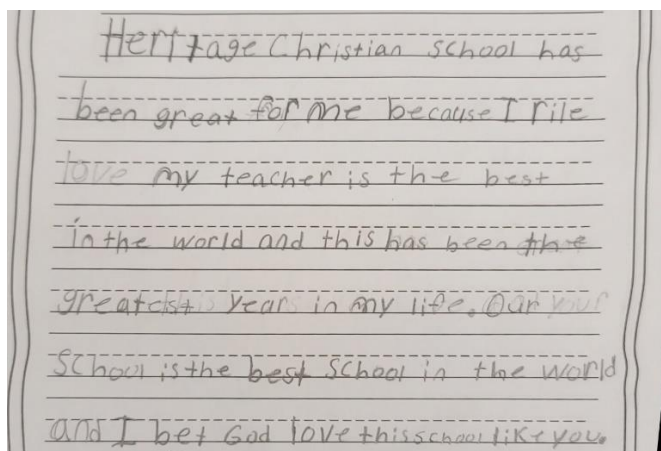 Heritage Christian school has
been great for me because I rile
love my teacher is the best
in the world and this has been the
greatest years in my life. Our
School is the best School in the world
and I bet God love this school like you.